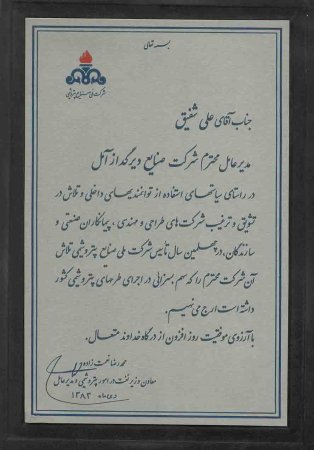 بسمه تعالی
شرکت ملی صنایع پتروشیمی
جناب آقای علی شفیق
مدیرعامل محترم شرکت صنایع دیرگداز آمل
در راستای سیاستهای استفاده از توانمندیهای داخلی و تلاش در
تشویق و ترغیب شرکت‌های طراحی و مهندسی، پیمانکاران صنعتی و
سازندگان، در چهلمین سال تأسیس شرکت ملی صنایع پتروشیمی تلاش
آن شرکت محترم را که سهم بسزائی در اجرای طرحهای پتروشیمی کشور
داشته است ارج می‌نهیم.
با آرزوی موفقیت روز افزون از درگاه خداوند متعال.
محمدرضا نعمت زاده
معاون وزیر نفت در امور پتروشیمی و مدیرعامل
دی ماه ۱۳۸۳